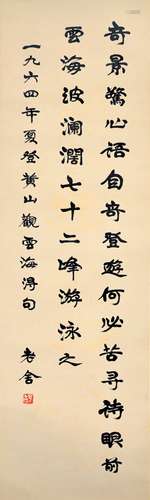 奇景驚心語自奇登遊何必苦寻诗眼前
雲海波澜濶七十二峰游泳之
一九六四年夏登黄山觀雲海得句 老舍